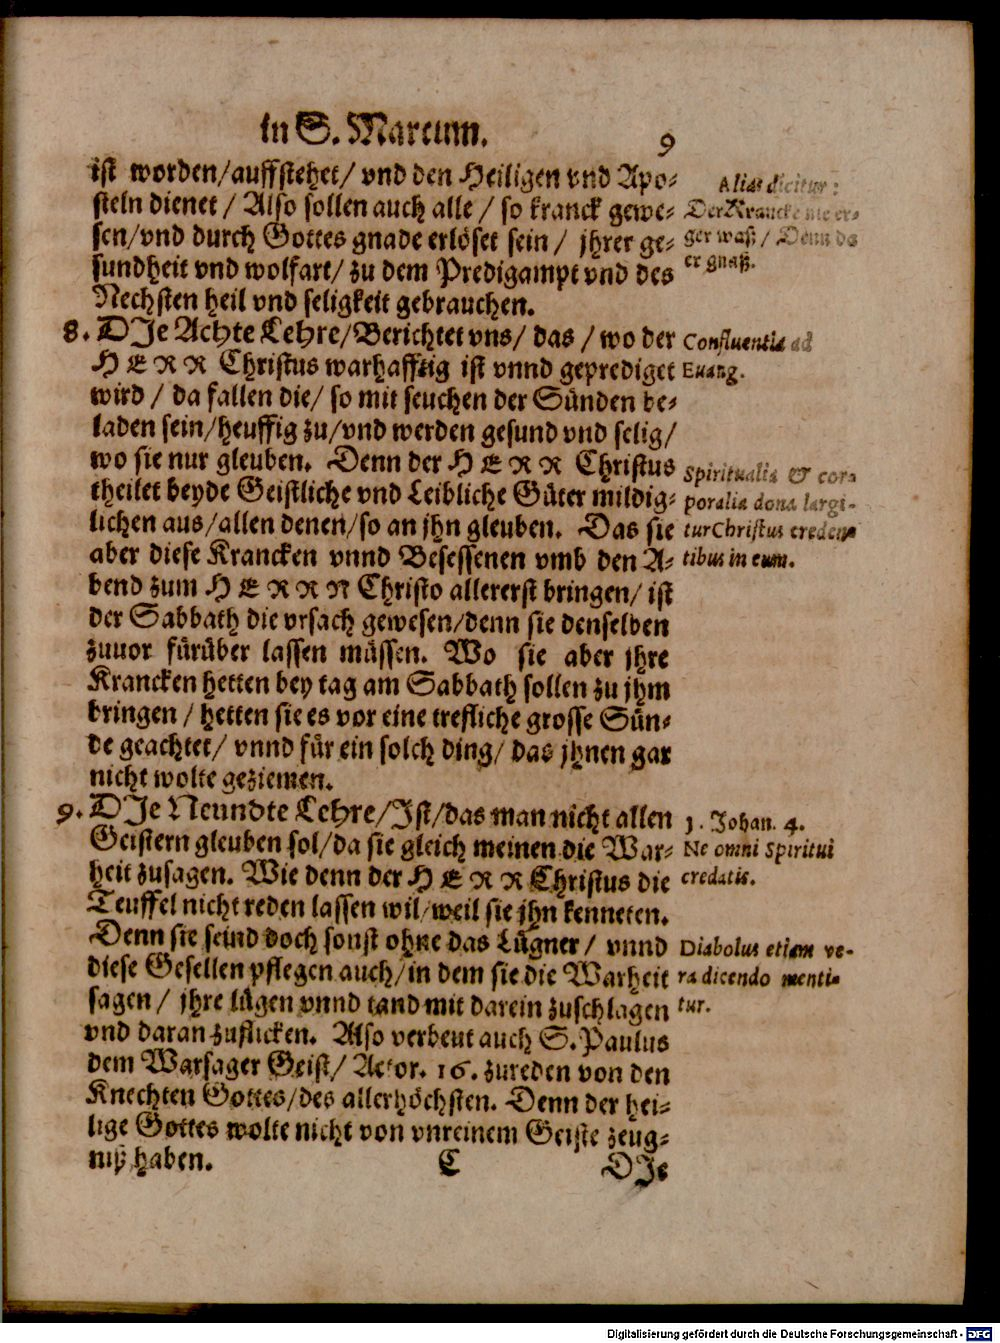 in S. Marcum.
9
ist worden/auffstehet/ vnd den Heiligen vnd Apo-
steln dienet / Also sollen auch alle / so kranck gewe-
sen/vnd durch Gottes gnade erlöset sein / jhrer ge-
sundheit vnd wolfart/ zu dem Predigampt vnd des
Nechsten heil vnd seligkeit gebrauchen.
Alias dicitur :
Der Krancke nie er-
ger waß / Denn da
er gnaß.
8. DJe Achte Lehre/Berichtet vns/ das / wo der
HERR Christus warhafftig ist vnnd geprediget
wird / da fallen die/ so mit seuchen der Sünden be-
laden sein/heuffig zu/vnd werden gesund vnd selig/
wo sie nur gleuben. Denn der HERR Christus
theilet beyde Geistliche vnd Leibliche Güter mildig-
lichen aus/allen denen/so an jhn gleuben. Das sie
aber diese Krancken vnnd Besessenen vmb den A-
bend zum HERRN Christo allererst bringen/ ist
der Sabbath die vrsach gewesen/denn sie denselben
zuuor fürüber lassen müssen. Wo sie aber jhre
Krancken hetten bey tag am Sabbath sollen zu jhm
bringen / hetten sie es vor eine trefliche grosse Sün-
de geachtet/ vnnd für ein solch ding/ das jhnen gar
nicht wolte geziemen.
Confluentia ad
Euang.
Spiritualia & cor-
poralia dona largi-
tur Christus creden-
tibus in eum.
9. DJe Neundte Lehre/Jst/das man nicht allen
Geistern gleuben sol/da sie gleich meinen die War-
heit zusagen. Wie denn der HERR Christus die
Teuffel nicht reden lassen wil/weil sie jhn kenneten.
Denn sie seind doch sonst ohne das Lügner/ vnnd
diese Gesellen pflegen auch/in dem sie die Warheit
sagen / jhre lügen vnnd tand mit darein zuschlagen
vnd daran zuflicken. Also verbeut auch S. Paulus
dem Warsager Geist/ Actor. 16. zureden von den
Knechten Gottes/des allerhöchsten. Denn der hei-
lige Gottes wolte nicht von vnreinem Geiste zeug-
niß haben.
1. Johan. 4.
Ne omni Spiritui
credatis.
Diabolus etiam ve-
ra dicendo menti-
tur.
C
DJe
Digitalisierung gefördert durch die Deutsche Forschungsgemeinschaft - DFG